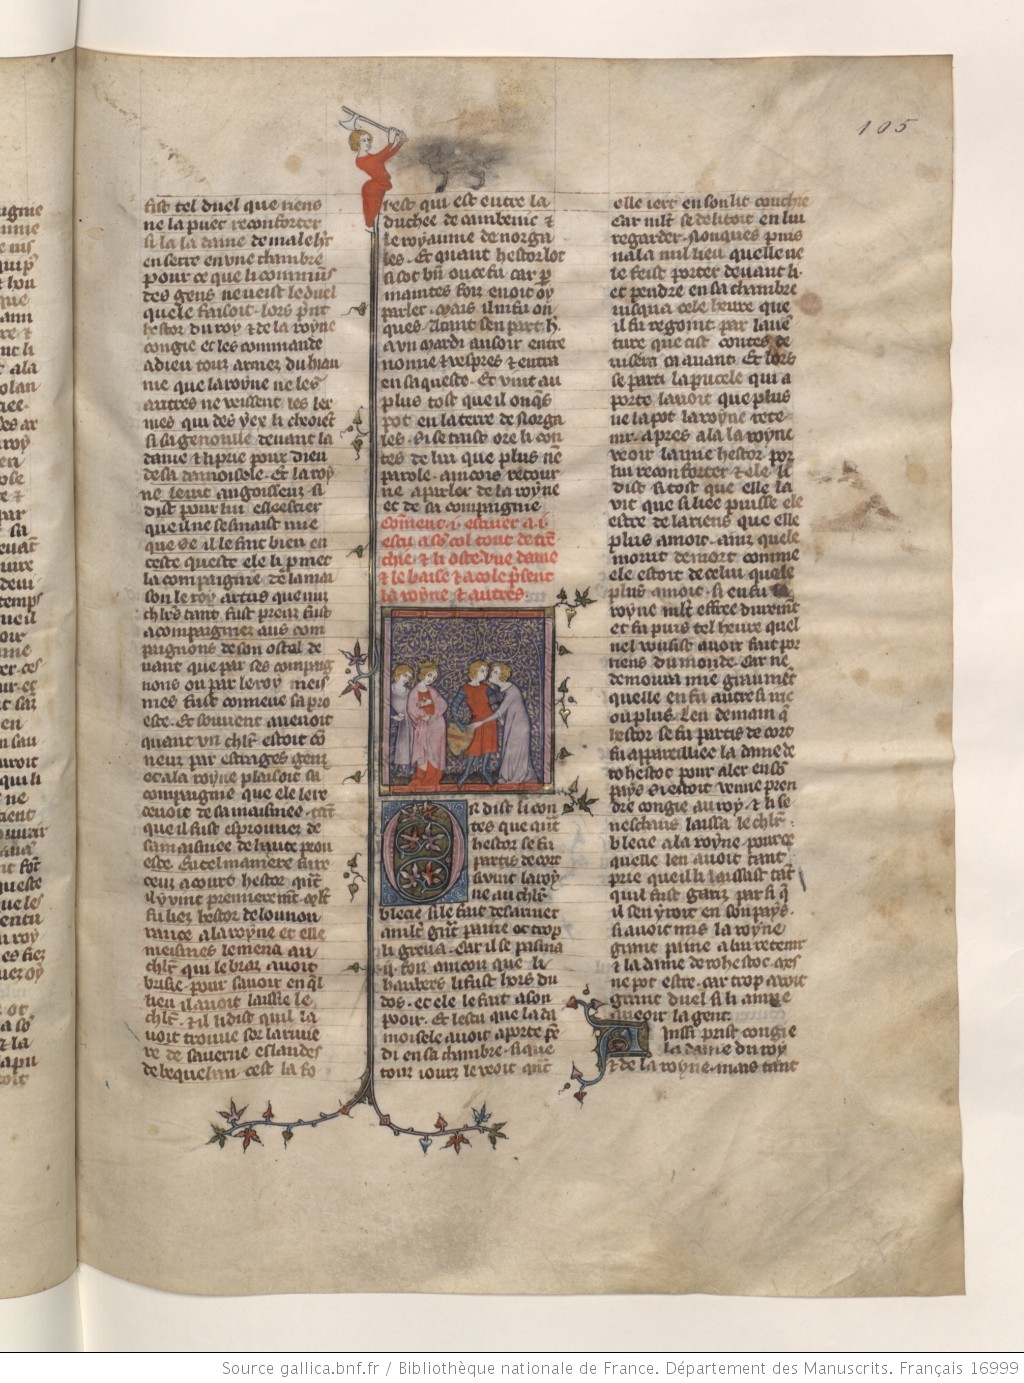 105
fist tel duel que riens
ne la puet reconforter
si la la dame de maleh't
enserre en une chambre
pour ce que li cõmũs
des gens ne veist le duel
quele faisoit. lors p'nt
hestor du roy & de la royne
congie et les commande
a dieu touz armez du hiau
me que la royne ne les
autres ne veissent les ler
mes qui des yex li cheoiẽt
si sagenoille devant la
dame & li prie pour dieu
de sa damoisele. Et la roy
ne
dist pour lui
que
que se il le fait bien en
ceste queste ele li p'met
la compaignie de la mai
son le roy artus que nus
chl'rs tant fust preuz fust
acompaigniez aus com
paignons de son ostel de
vant que par ses compaig
nons ou par le roy meis
mes fust conneue sa pro
esce. Et souvent avenoit
quant un chl'r estoit cõ
neuz par estranges genz
& a la royne plaisoit sa
compaignie que ele lere
tenoit de sa maisnee tãt
que il fust esprouvez de
sa maisnee de haute prou
esce. En tel maniere fu re
tenuz a court hestor quãt
il y vint premierem̃t. m̃lt
fu liez hestor de lounou
rance a la royne et elle
meismes le mena au
chl'r qui le braz avoit
brisie pour savoir en q̃l
lieu il avoit laissie le
chl'r & il li dist quil la
voit trouve sor la rivie
re de saverne es landes
de bequehan. cest la fo
rest qui est entre la
duchee de cambenic &
le royaume de norga
les. Et quant hestor lot
si sot bñ ou ce fu car p
maintes foiz en oit oy
parler. mais il ni fu on
ques. Atant sen part h.
a un mardi au soir entre
nonne & vespres & entra
en sa queste. Et vint au
plus tost que il onq̃s
pot en la terre de norga
les. Si se taist ore li con
tes de lui que plus nẽ
parole. ancois retour
ne a parler de la royne
et de sa compaignie
Cõment .i. escuier a .i.
escu a sõ col tout detrẽ
chie & li oste une dame
& le baise & acole p'sent
la royne & autres.
Or dist li con
tes que quãt
hestor se fu
partis de cort
savint la roy
ne au chl'r
blecie si le fait desarmer
a m̃lt grãt paine & trop
li greva. Car il se pasma
.ii. foiz ancois que li
haubers li fust hors du
dos. et ele le fait a son
pooir. Et lescu que la da
moisele avoit aporte pẽ
di en sa chambre si que
touz iourz le veoit quãt
elle iert en son lit couchie
Car m̃lt se delitoit en lui
regarder. Nonques puis
nala en nul lieu quelle ne
le feist porter devant li.
et pendre en sa chambre
iusqua cele heure que
il fu regoint par lave
ture que cist contes de
visera ca avant. Et lors
se parti la pucele qui a
porte lavoit que plus
ne la pot la royne rete
nir. Apres ala la royne
veoir lamie hestor por
lui reconforter & ele li
dist si tost que elle la
vit que si liee puisse ele
estre de la riens que elle
plus amoit. ainz quele
morut de mort comme
ele estoit de celui quele
plus amoit. si en fu la
royne m̃lt effree durem̃t
et fu puis tel heure quel
nel vousist avoir fait por
riens du monde. Car ne
demoura mie graum̃t
quelle en fu autresi ire
ou plus. Len demain q̃
hestor se fu partis de cort
fu apareilliee la dame de
rohestoc pour aler en sõ
pays si estoit venue pren
dre congie au roy. & li se
neschaus laissa le chl'r
blecie a la royne. pour ce
quelle len avoit tant
prie que il li laissast tãt
quil fust gariz par si q̃
il sen yroit en son pays.
si avoit mis la royne
grant paine a lui retenir
& la dame de rohestoc. mes
ne pot estre. car trop avoit
grant duel si li anuie
avoir la gent.
Ainsi prist congie
la dame du roy
& de la royne. mais tant
Source gallica.bnf.fr / Bibliothèque nationale de France. Département des Manuscrits. Français 16999